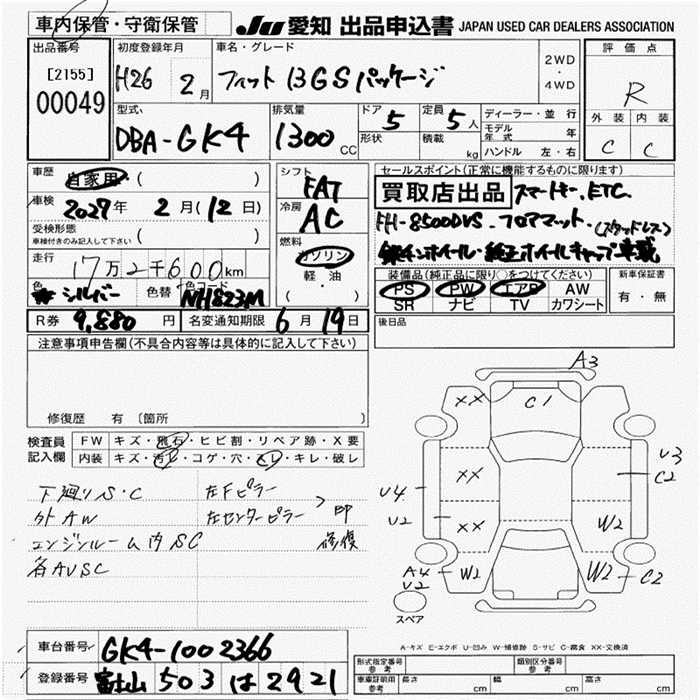 車内保管・守衛保管
JU 愛知 出品申込書 JAPAN USED CAR DEALERS ASSOCIATION
出品番号 [2155] 00049
初度登録年月 H26 2月
車名・グレード フィット 13GSパッケージ
2WD ・ 4WD
評価点 R
外装 内装
C C
型式 DBA-GK4
排気量 1300 CC
ドア 5 定員 5人
形状 積載 kg
ディーラー・並行
モデル年式 年
ハンドル 左・右
車歴 自家用 ( )
車検 2027年 2月(12日)
受検形態 車検付きのみ記入して下さい ( )
走行 17万2千600km
色 シルバー 色替 色コード NH823M
シフト FAT
冷房 AC
燃料 ガソリン
軽・油
( )
R券 9,880円 名変通知期限 6月19日
セールスポイント(正常に機能するものに限ります)
買取店出品 スマートキー、ETC
FH-8500DVS、フロアマット、(スタッドレス)
鉄チンホイール・純正ホイールキャップ車載
装備品(純正品に限り○をつけてください)
PS PW エアB AW
SR ナビ TV カワシート
新車保証書
有・無
後日品
注意事項申告欄(不具合内容等は具体的に記入して下さい)
修復歴 有 〔箇所
検査員記入欄
FW キズ・飛石・ヒビ割・リペア跡・X要
内装 キズ・汚レ・コゲ・穴・スレ・キレ・破レ
下廻りS・C 左Fピラー
外AW 左センターピラー > 即
エンジンルーム内SC 修復
各AUSC
A3
C1
XX
XX
XX
U3
C2
U4
U2
W2
A4
U2
W2
W2
C2
スペア
A-キズ E-エクボ U-凹み W-補修跡 S-サビ C-腐食 XX-交換済
車台番号 GK4-1002366
登録番号 富士山 503 は 2921
形式指定番号 参考 類別区分番号 参考
車庫証明用 参考 長さ cm 幅 cm 高さ cm